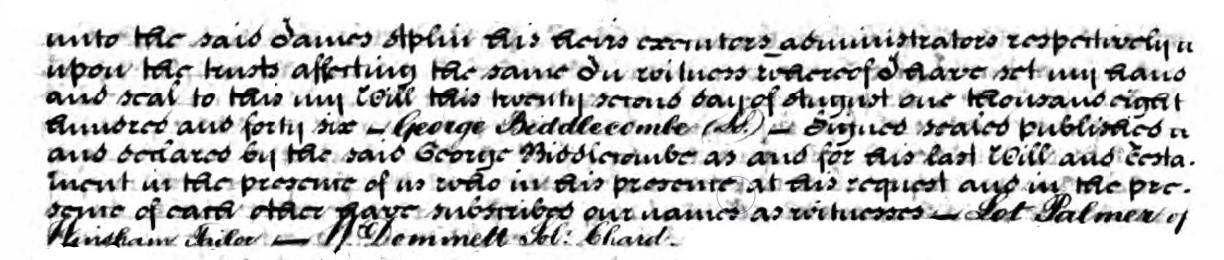 unto the said James Aplin his heirs executors administrators respectively
upon the trusts affecting the same In witness whereof I have set my hand
and seal to this my Will this twenty second day of August one thousand eight
hundred and forty six – George Biddlecombe (LS.) – Signed sealed published
and declared by the said George Biddlecombe as and for his last Will and Testa-
ment in the presence of us who in his presence at his request and in the pre-
sence of each other have subscribed our names as witnesses – Lot Palmer of
Winsham Tailor – Wm. Dommett Sol: Chard.